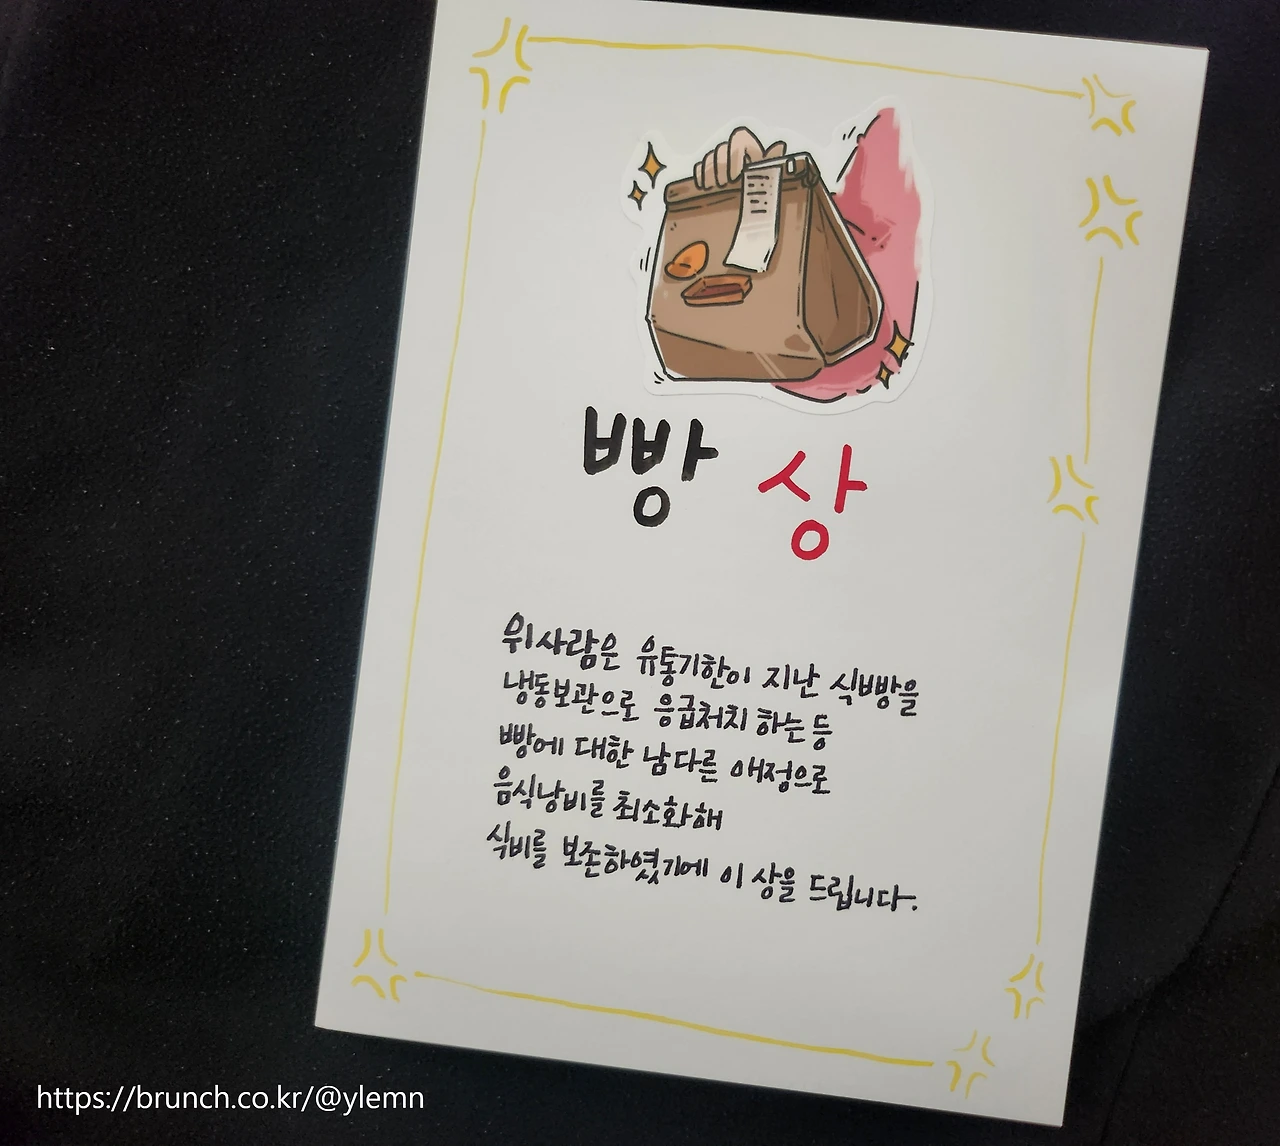 빵 상
위사람은 유통기한이 지난 식빵을
냉동보관으로 응급처치 하는 등
빵에 대한 남다른 애정으로
음식낭비를 최소화해
식비를 보존하였기에 이 상을 드립니다.
https://brunch.co.kr/@ylemn